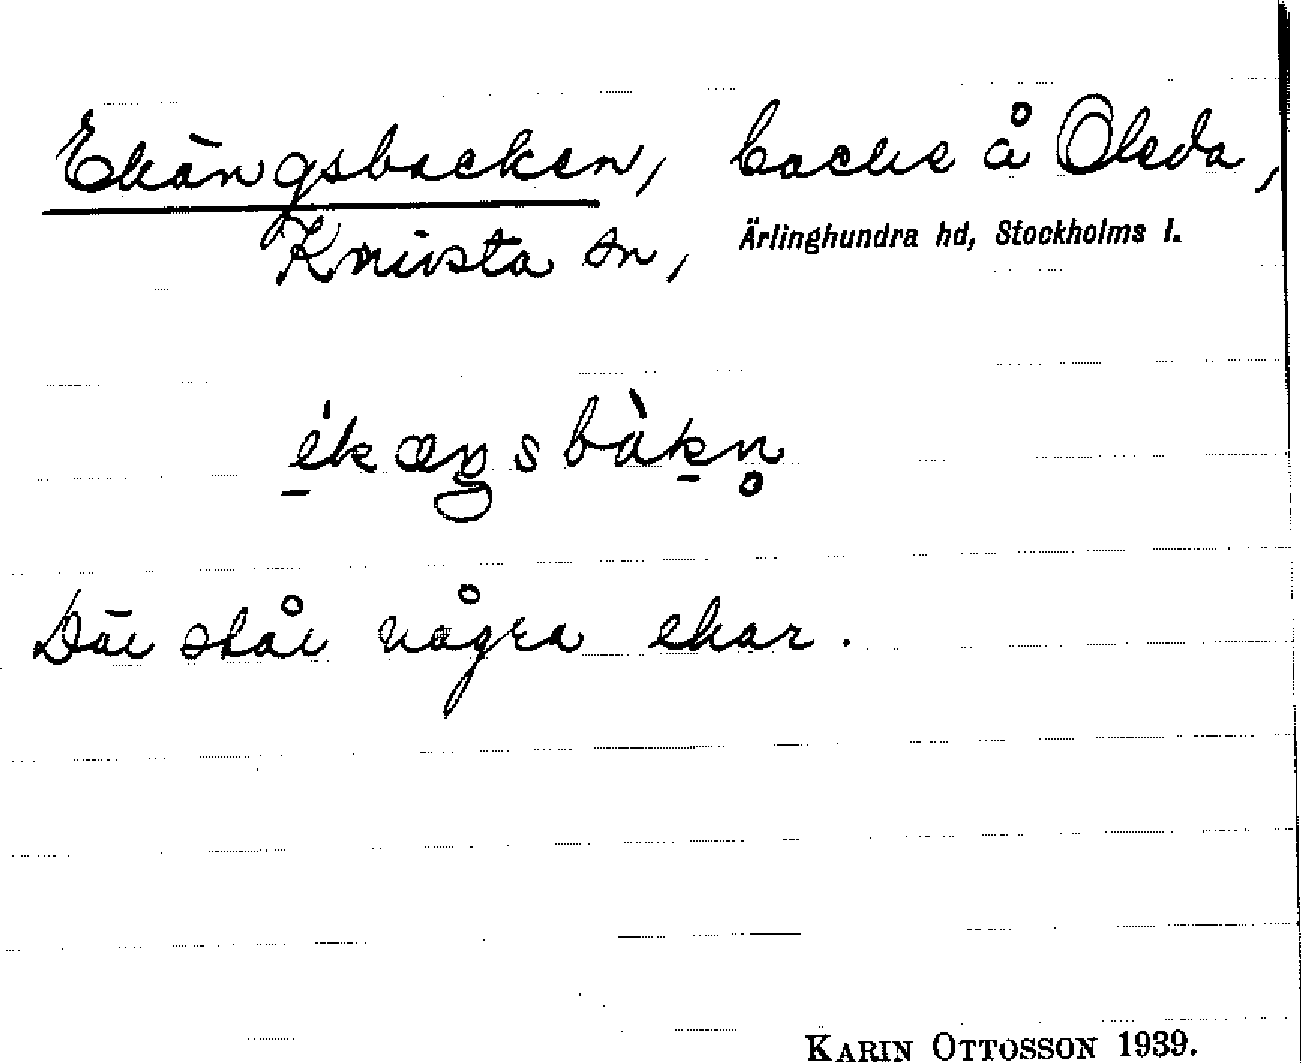 Ekängsbacken, backe å Olsda,
Knivsta sn, Ärlinghundra hd, Stockholms l.
ékæŋsbàkn̥
Där står några ekar.
KARIN OTTOSSON 1939.